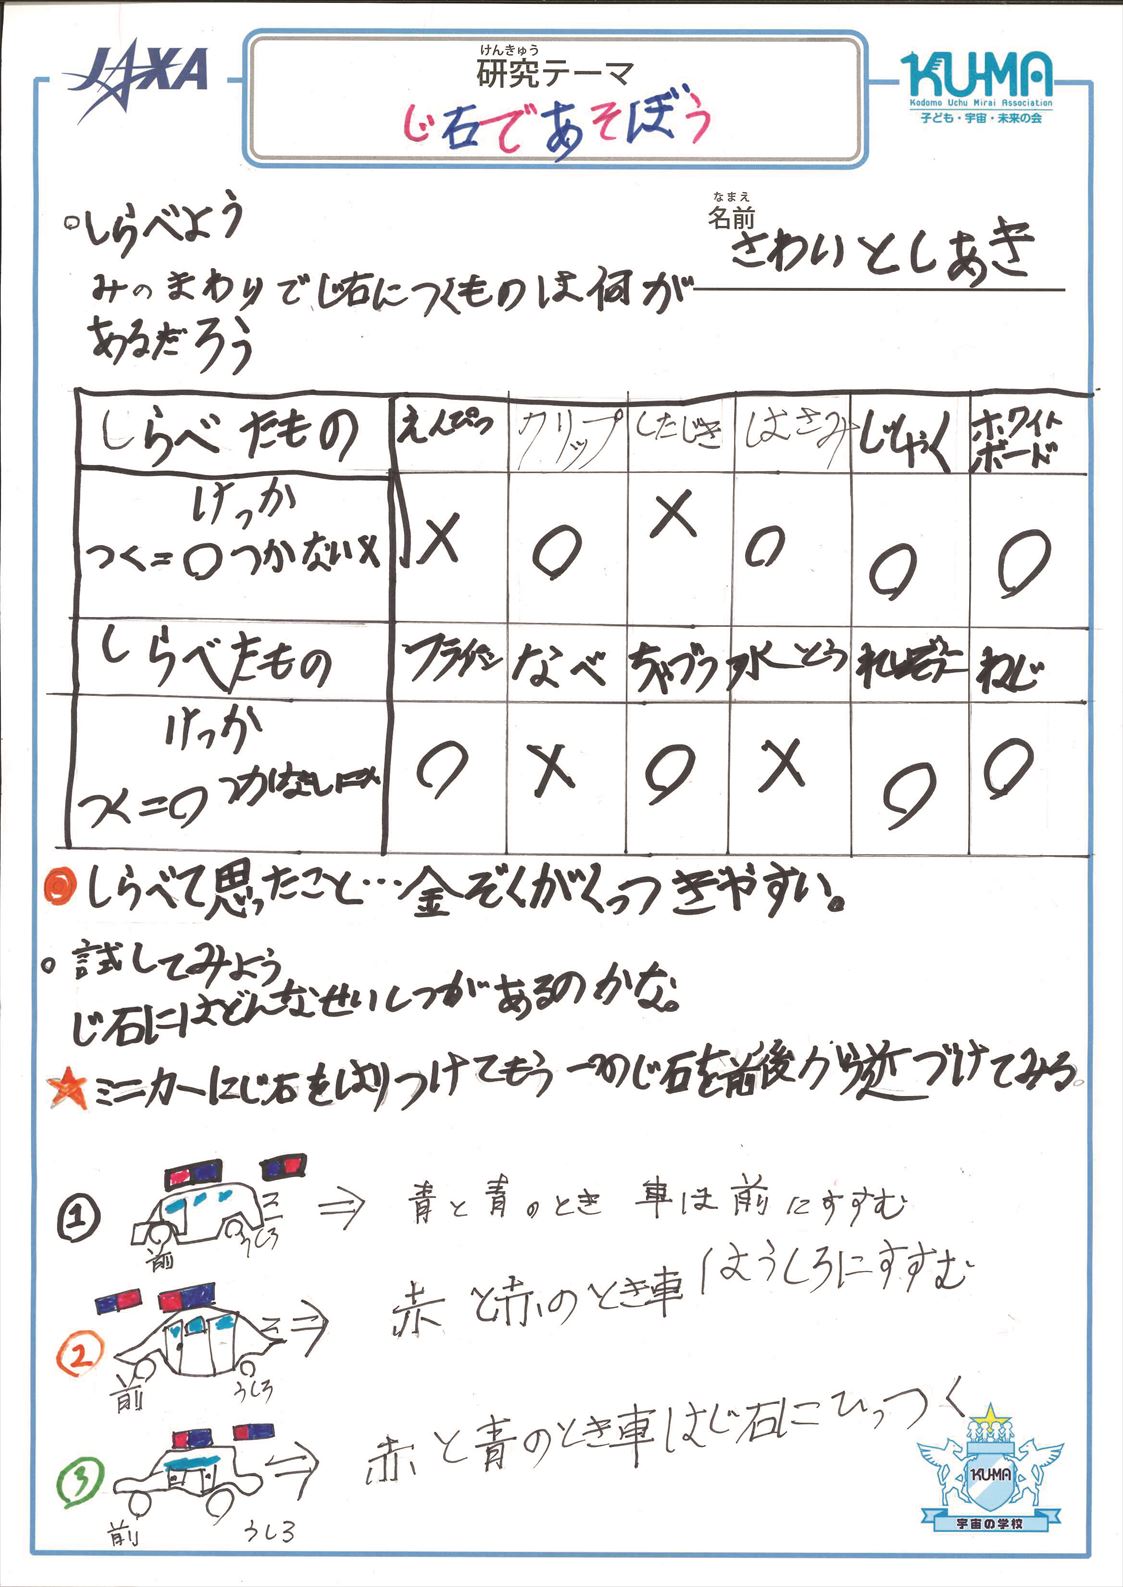 JAXA
けんきゅう
研究テーマ
じ石であそぼう
KU-MA
Kodomo Uchu Mirai Association
子ども・宇宙・未来の会
なまえ
名前
さわいとしあき
○しらべよう
みのまわりでじ石につくものは何が
あるだろう
しらべたもの えんぴつ クリップ したじき はさみ じしゃく ホワイトボード
けっか
つく=○つかない× × ○ × ○ ○ ○
しらべたもの フライパン なべ 水とう ねじ
けっか
つく=○ ○ × ○ × ○ ○
◎しらべて思ったこと…金ぞくがくっつきやすい。
○試してみよう
じ石にはどんなせいしつがあるのかな。
★ミニカーにじ石をはりつけてもう一つのじ石を前後から近づけてみる。
① 前 うしろ ⇒ 青と青のとき 車は前にすすむ
② 前 うしろ ⇒ 赤と赤のとき車はうしろにすすむ
③ 前 うしろ ⇒ 赤と青のとき車はじ石にひっつく
KU-MA
宇宙の学校